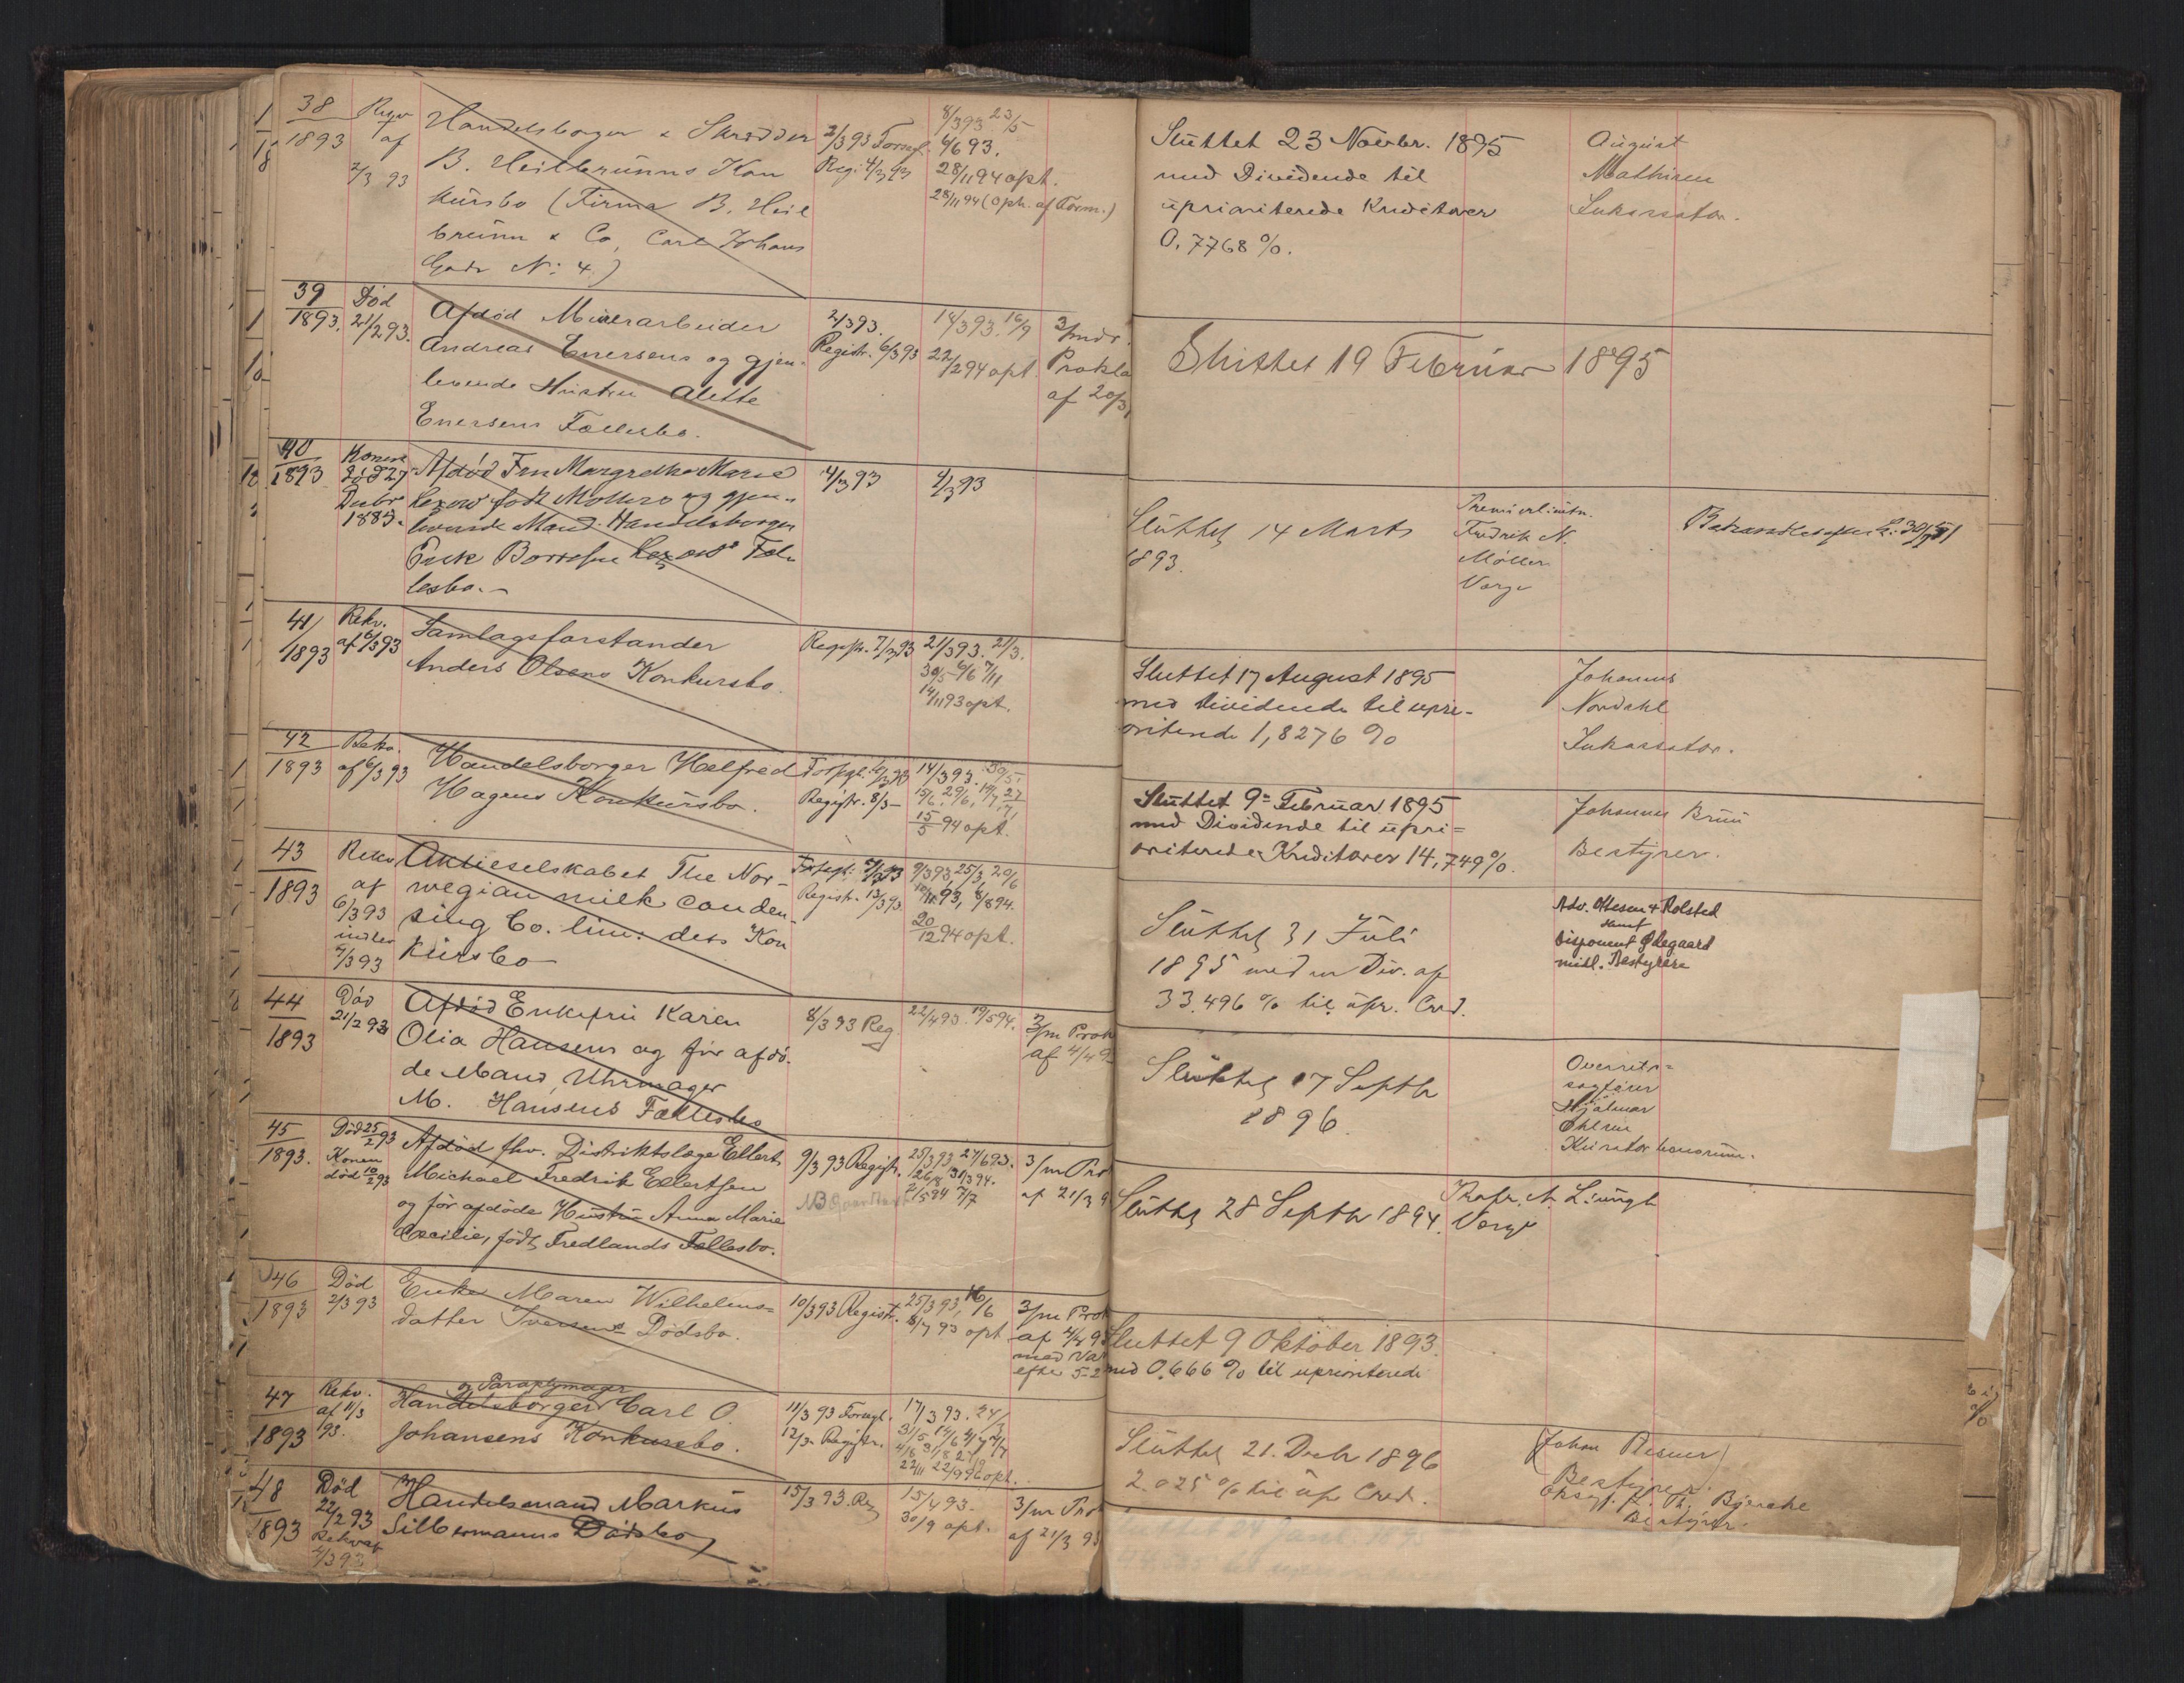 38
1893
Rekv
af
2/3 93
Handelsborger & Skrædder
B. Heilbrunns Kon
kursbo (Firma B. Heil
brunn & Co, Carl Johans
Gade N: 4)
2/3 93 Forsegl.
Reg: 4/3 93
8/3 93 23/5
6/6 93.
28/11 94 opt.
28/11 94 (oph. af Form.)
Sluttet 23 Novbr. 1895
med Dividende til
uprioriterede Kreditorer
0,7768 %.
August
Mathisen
Inkassator.
39
1893.
Død
21/2 93.
Afdød Murarbeider
Andreas Enersens og gjen-
levende Hustru Alette
Enersens Fællesbo.
2/3 93.
Registr. 6/3 93
14/3 93. 16/9
22/2 94 opt.
3/mdr.
Prokla
af 20/3
Sluttet 19 Februar 1895
40
1893
Konen
død 27
Decbr
1889.
Afdød Fru Margrethe Marie
Lexow født Møllers og gjen-
levende Mand Handelsborger
Erik Borresen Lexows Fæl
lesbo.-
4/3 93
4/3 93
Sluttet 14 Marts
1893.
Premierlieutn.
Fredrik N.
Møller
Værge
41
1893
Rekv.
af 6/3 93
Samlagsforstander
Anders Olsens Konkursbo.
Registr. 7/3 93
21/3 93. 21/3.
30/5 6/6 7/11
14/11 93 opt.
Sluttet 17 August 1895
med Dividende til upri-
oriterede 1,8276 %
Johannes
Nordahl
Inkassator.
42
1893
Rekv.
af 6/3 93
Handelsborger Helfred
Hagens Konkursbo.
Forsegl. 6/3 93
Registr. 8/3 -
14/3 93. 30/5.
15/5 94 opt.
Sluttet 9= Februar 1895
med Dividende til upri=
oriterede Kreditorer 14,749 %.
Johannes Bruun
Bestyrer.
43
1893
Rekv
af
6/3 93
indlev
6/3 93
Aktieselskabet The Nor-
wegian milk conden-
sing Co. lim: dets Kon
kursbo
Forsegl: 6/3 93
Registr. 13/3 93
9/3 93, 25/3, 29/6
8/8 94.
20/12 94 opt.
Sluttet 31 Juli
1895 med en Div. af
33.496 % til upr. Cred.
Adv. Ottesen & Rolsted
samt
Disponent Ødegaard
midl. Bestyrere
44
1893
Død
21/2 93
Afdød Enkefru Karen
Olia Hansens og før afdø-
de Mand, Uhrmager
M. Hansens Fællesbo
8/3 93 Reg.
22/4 93. 19/5 94.
3/m Prok
af 4/4 9
Sluttet 17 Septbr
1896.
Overrets=
sagfører
Hjalmar
Ohlsen
Kurator bonorum.
45
1893.
Død 25/2 93
Konen
død 10/2 93
Afdød fhv. Distriktslæge Ellert
Michael Fredrik Ellertsen
og før afdøde Hustru Anna Marie
Cecilie, født Fredlands Fællesbo.
9/3 93 Registr.
25/3 93 27/6 93.
2/5 94 7/7
3/m Pro
af 21/3 9
Sluttet 28 Septbr 1894.
Værge
46
1893
Død
2/3 93
Enke Maren Wilhelms=
datter Iversens Dødsbo.
10/3 93 Registr.
25/3 93, 16/6
18/7 93 opt
3/m Prok
af 4/4 93
med Va
efter 5-2
Sluttet 9 Oktober 1893.
med 0.666 % til uprioriterede
47
1893
Rekv.
af 11/3
93.
og Paraplymager
Handelsborger Carl O.
Johansens Konkursbo.
11/3 93 Forsegl.
12/3 - Registr.
17/3 93. 24/3
22/11 22/9 96 opt.
Sluttet 21. Decbr 1896
2.025 % til upr Cred.
Johan
Bestyrer.
Bjercke
Bestyrer.
48
1893
Død
22/2 93
Rekv af
4/3 93
Handelsmand Markus
Silbermanns Dødsbo
15/3 93. Reg
15/4 93.
30/9 opt.
3/m Pro
af 21/3 93